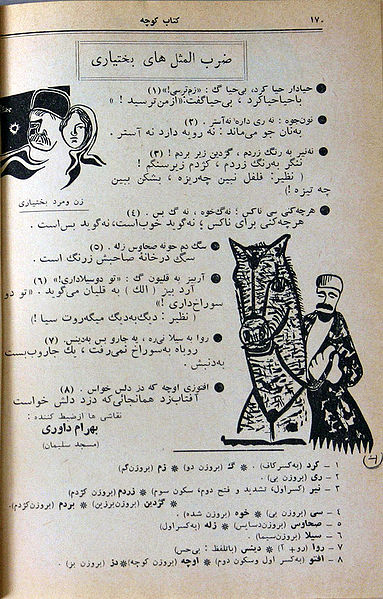 ۱۷۰ کتاب کوچه
ضرب المثل های بختیاری
حیادار حیا کرد، بی‌حیا گ : «زم‌ترسی!» (۱)
باحیاحیاکرد ، بی‌حیاگفت:«ازمن‌ترسید ! »
نون‌جوه : نه ری داره نه‌آستر . (۲)
به‌نان جو می‌ماند : نه رویه دارد نه آستر .
نه‌نیر به رنگ زردم ، گژدین زیر بردم ! (۳)
ننگر به‌رنگ زردم ، کژدم زیرسنگم !
( نظیر: فلفل نبین چه‌ریزه ، بشکن ببین
چه تیزه !)
زن ومرد بختیاری
هرچه‌کنی سی ناکس ؛ نه‌گ‌خوه ، نه گ بس . (۴)
هرچه‌کنی برای ناکس ؛ نه‌گوید خوب‌است، نه‌گوید بس‌است .
سگ دم حونه صحاوس زله . (۵)
سگ درخانهٔ صاحبش زرنگ است .
آربیز به قلیون گ : «تو دوسیلاداری!» (۶)
آرد بیز ( الك ) به قلیان می‌گوید . «تو دو
سوراخ‌داری !»
( نظیر : دیگ‌به‌دیگ میگه‌روت سیا !)
روا به سیلا نی‌ره ، یه جارو بس به‌دینس. (۷)
روباه به‌سوراخ نمی‌رفت ، یك جاروب‌بست
به‌دنبش .
افتوزی اوچه که دز دلس خواس . (۸)
آفتاب‌زد همانجائی‌که دزد دلش خواست
نقاشی ها ازضبط کننده :
بهرام داوری
(مسجد سلیمان)
۱ – کرد (به‌کسرکاف) . * گ (بروزن دو) * زم (بروزن‌گم)
۲ – ری (بروزن بی) .
۳ – نیر (کسراول، تشدید و فتح دوم، سکون سوم) * زردم (بروزن کژدم)
* گژدین (بروزن‌برزین) * بردم (بروزن‌کژدم).
۴ – سی (بروزن بی) * خوه (بروزن شده) .
۵ – صحاوس (بروزن‌دسایس) * زله (به‌کسراول)
۶ – سیلا (بروزن‌سیما) .
۷ – روا (رو+ آ) * دینس (باتلفظ : بی‌حس)
۸ – افتو (به‌کسر اول وسکون دوم) * اوچه (بروزن کوچه) * دز (بروزن بز) .